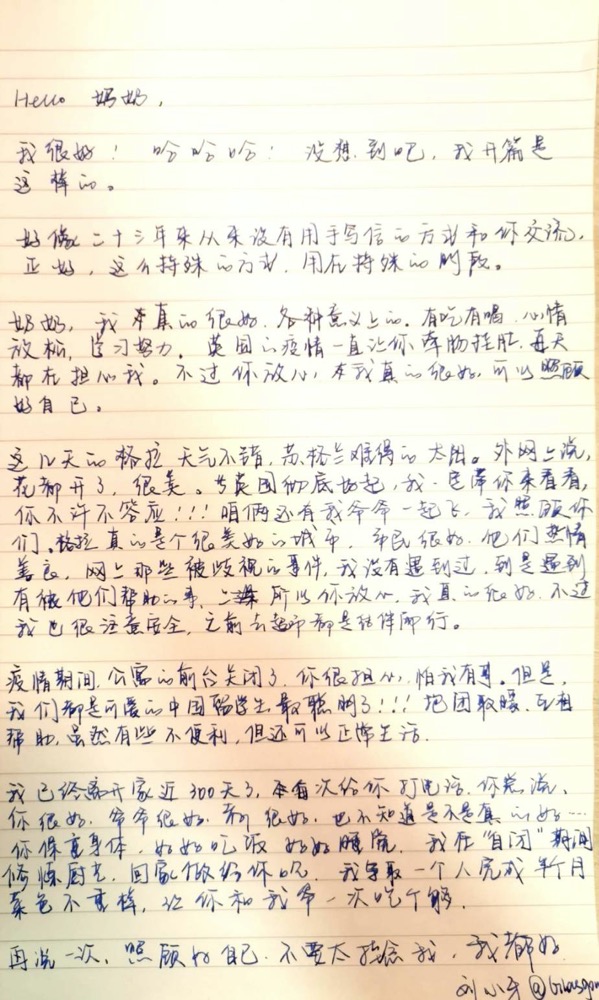 Hello 奶奶,
我很好! 哈哈哈! 没想到吧, 我开篇是
这样的。
好像二十三年来从来没有用手写信的方式和你交流,
正好, 这么特殊的方式, 用在特殊的时段。
奶奶, 我真的很好, 各种意义上的。有吃有喝, 心情
放松, 学习努力。英国的疫情一直让你牵肠挂肚, 每天
都在担心我。不过你放心, 我真的很好, 可以照顾
好自己。
这几天的格拉 天气不错, 苏格兰难得的太阳。外网上说,
花都开了, 很美。等英国彻底好起, 我一定带你来看看,
你不许不答应!!! 咱俩还有我爷爷一起飞, 我照顾你
们。格拉真的是个很美好的城市, 市民很好, 他们热情
善良, 网上那些被歧视的事件, 我没有遇到过, 到是遇到
有被他们帮助的事, 所以你放心, 我真的很好, 不过
我也很注意安全, 之前去超市都是结伴而行。
疫情期间, 公寓的前台关闭了, 你很担心, 怕我有事。但是,
我们都是可爱的中国留学生, 最聪明了!!! 抱团取暖, 互相
帮助, 虽然有些不便利, 但还可以正常生活.
我已经离开家近300天了, 每次给你打电话, 你总说,
你很好, 爷爷很好, 都很好, 也不知道是不是真的好……
你保重身体, 好好吃饭 好好睡觉, 我在“自闭”期间
修炼厨艺, 回家做给你吃, 我争取一个人完成半个月
菜色不重样, 让你和我爷一次吃个够.
再说一次, 照顾好自己, 不要太挂念我, 我都好.
刘小